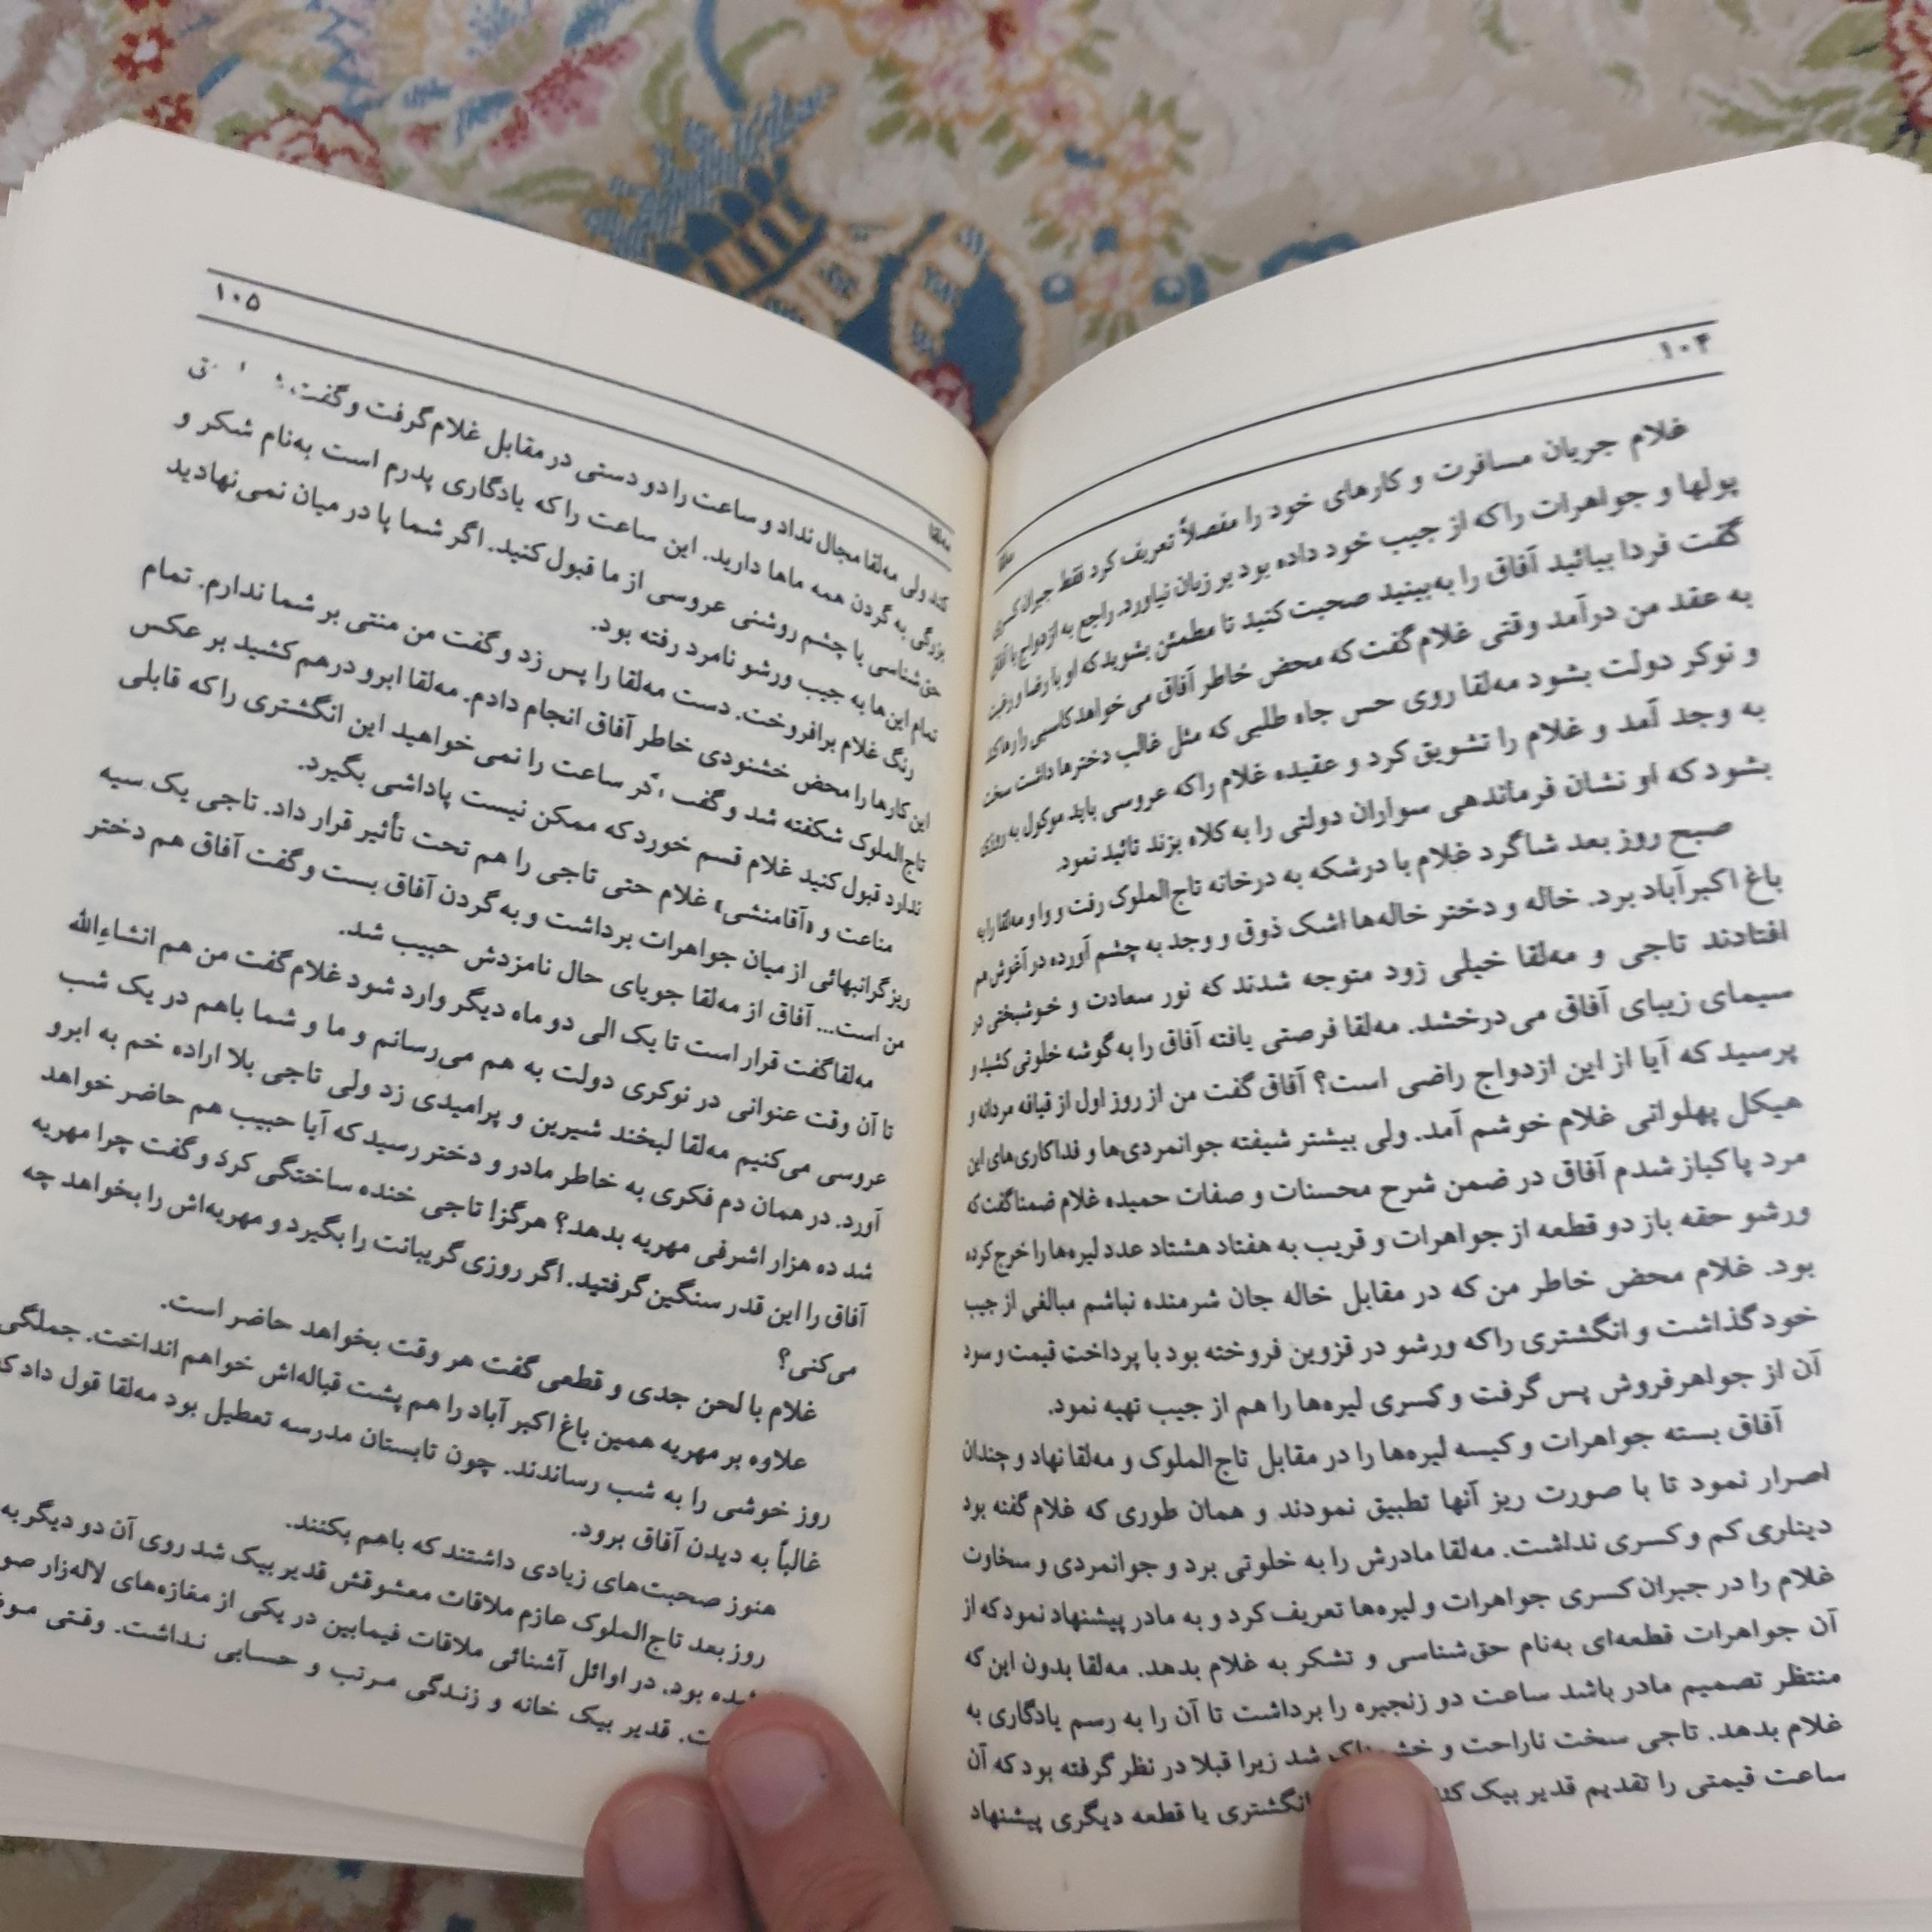 ۱۰۴
مه‌لقا
غلام جریان مسافرت و کارهای خود را مفصلاً تعریف کرد فقط جبران کسری
پولها و جواهرات را که از جیب خود داده بود بر زبان نیاورد. راجع به ازدواج با آفاق
گفت فردا بیائید آفاق را به‌بینید صحبت کنید تا مطمئن بشوید که او با رضا و رغبت
به عقد من درآمد وقتی غلام گفت که محض خاطر آفاق می‌خواهد کاسبی را رها کند
و نوکر دولت بشود مه‌لقا روی حس جاه طلبی که مثل غالب دخترها داشت سخت
به وجد آمد و غلام را تشویق کرد و عقیده غلام را که عروسی باید موکول به روزی
بشود که او نشان فرماندهی سواران دولتی را به کلاه بزند تائید نمود.
صبح روز بعد شاگرد غلام با درشکه به درخانه تاج‌الملوک رفت و وا و مه‌لقا را به
باغ اکبرآباد برد. خاله و دختر خاله‌ها اشک ذوق و وجد به چشم آورده در آغوش هم
افتادند تاجی و مه‌لقا خیلی زود متوجه شدند که نور سعادت و خوشبختی در
سیمای زیبای آفاق می‌درخشد. مه‌لقا فرصتی یافته آفاق را به گوشه خلوتی کشید و
پرسید که آیا از این ازدواج راضی است؟ آفاق گفت من از روز اول از قیافه مردانه و
هیکل پهلوانی غلام خوشم آمد. ولی بیشتر شیفته جوانمردی‌ها و فداکاری‌های این
مرد پاکباز شدم آفاق در ضمن شرح محسنات و صفات حمیده غلام ضمنا گفت که
ورشو حقه باز دو قطعه از جواهرات و قریب به هفتاد هشتاد عدد لیره‌ها را خرج کرده
بود. غلام محض خاطر من که در مقابل خاله جان شرمنده نباشم مبالغی از جیب
خود گذاشت و انگشتری را که ورشو در قزوین فروخته بود با پرداخت قیمت و سود
آن از جواهرفروش پس گرفت و کسری لیره‌ها را هم از جیب تهیه نمود.
آفاق بسته جواهرات و کیسه لیره‌ها را در مقابل تاج‌الملوک و مه‌لقا نهاد و چندان
اصرار نمود تا با صورت ریز آنها تطبیق نمودند و همان طوری که غلام گفته بود
دیناری کم و کسری نداشت. مه‌لقا مادرش را به خلوتی برد و جوانمردی و سخاوت
غلام را در جبران کسری جواهرات و لیره‌ها تعریف کرد و به مادر پیشنهاد نمود که از
آن جواهرات قطعه‌ای به‌نام حق‌شناسی و تشکر به غلام بدهد. مه‌لقا بدون این که
منتظر تصمیم مادر باشد ساعت دو زنجیره را برداشت تا آن را به رسم یادگاری به
غلام بدهد. تاجی سخت ناراحت و شد زیرا قبلا در نظر گرفته بود که آن
ساعت قیمتی را تقدیم قدیر بیک انگشتری یا قطعه دیگری پیشنهاد
۱۰۵
مه‌لقا
کند ولی مه‌لقا مجال نداد و ساعت را دو دستی در مقابل غلام گرفت و گفت،
بزرگی به گردن همه ماها دارید. این ساعت را که یادگاری پدرم است به‌نام شکر و
حق‌شناسی یا چشم روشنی عروسی از ما قبول کنید. اگر شما پا در میان نمی‌نهادید
تمام این‌ها به جیب ورشو نامرد رفته بود.
رنگ غلام برافروخت. دست مه‌لقا را پس زد و گفت من منتی بر شما ندارم. تمام
این کارها را محض خشنودی خاطر آفاق انجام دادم. مه‌لقا ابرو درهم کشید بر عکس
تاج‌الملوک شکفته شد و گفت اگر ساعت را نمی‌خواهید این انگشتری را که قابلی
ندارد قبول کنید غلام قسم خورد که ممکن نیست پاداشی بگیرد.
مناعت و «آقامنشی» غلام حتی تاجی را هم تحت تأثیر قرار داد. تاجی یک سیه
ریز گرانبهائی از میان جواهرات برداشت و به گردن آفاق بست و گفت آفاق هم دختر
من است... آفاق از مه‌لقا جویای حال نامزدش حبیب شد.
مه‌لقا گفت قرار است تا یک الی دو ماه دیگر وارد شود غلام گفت من هم انشاءالله
تا آن وقت عنوانی در نوکری دولت به هم می‌رسانم و ما و شما باهم در یک شب
عروسی می‌کنیم مه‌لقا لبخند شیرین و پرامیدی زد ولی تاجی بلا اراده خم به ابرو
آورد. در همان دم فکری به خاطر مادر و دختر رسید که آیا حبیب هم حاضر خواهد
شد ده هزار اشرفی مهریه بدهد؟ هرگز! تاجی خنده ساختگی کرد و گفت چرا مهریه
آفاق را این قدر سنگین گرفتید. اگر روزی گریبانت را بگیرد و مهریه‌اش را بخواهد چه
می‌کنی؟
غلام با لحن جدی و قطعی گفت هر وقت بخواهد حاضر است.
علاوه بر مهریه همین باغ اکبر آباد را هم پشت قباله‌اش خواهم انداخت. جملگی
روز خوشی را به شب رساندند. چون تابستان مدرسه تعطیل بود مه‌لقا قول داد که
غالباً به دیدن آفاق برود.
هنوز صحبت‌های زیادی داشتند که باهم بکنند.
روز بعد تاج‌الملوک عازم ملاقات معشوقش قدیر بیک شد روی آن دو دیگر به
شده بود. در اوائل آشنائی ملاقات فیمابین در یکی از مغازه‌های لاله‌زار
قدیر بیک خانه و زندگی مرتب و حسابی نداشت. وقتی